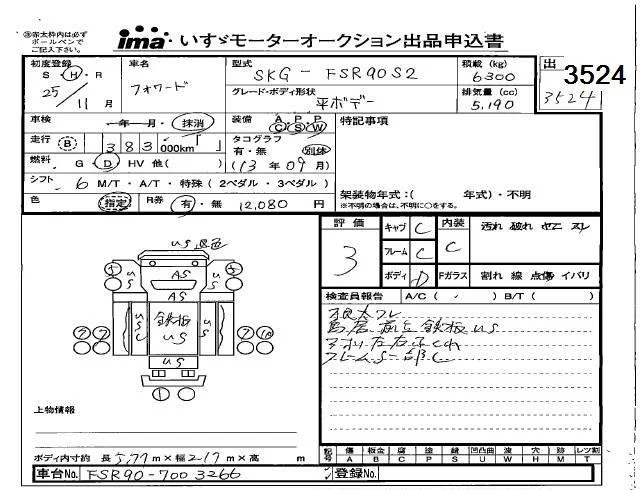 ㊟赤太枠内は必ず
ボールペンで
ご記入下さい。
ima・いすゞモーターオークション出品申込書
初度登録
S・H・R
25/11月
車名
フォワード
型式
SKG-FSR90S2
グレード・ボディ形状
平ボデー
積載(kg)
6300
排気量(cc)
5,190
出
3524
3524
車検
年 月・抹消
装備 A・P・P
C・S・W
特記事項
走行 B 383 000km
タコグラフ
有・無 別体
燃料 G D HV 他( )
(13年09月)
シフト 6 M/T・A/T・特殊(2ペダル・3ペダル)
色 指定 R券 有・無 12,080円
架装物年式:( 年式)・不明
※不明の場合は、不明に○をする。
評価
3
キャブ C
フレーム C
ボディ D
内装
C
汚れ 破れ ヤニ スレ
Fガラス 割れ 線 点傷 イバリ
検査員報告 A/C( ) B/T( )
鉄板 US
フレームS一部C
US 退色
AS
US
US
AS
US
鉄板
US
US
US
上物情報
ボディ内寸約 長5,77m×幅2,17m×高 m
記号 傷 板金 腐 塗 錆 凹凸曲 波 穴 跡 レツ割
A B C P S U W H M T
車台No. FSR90-7003266
登録No.